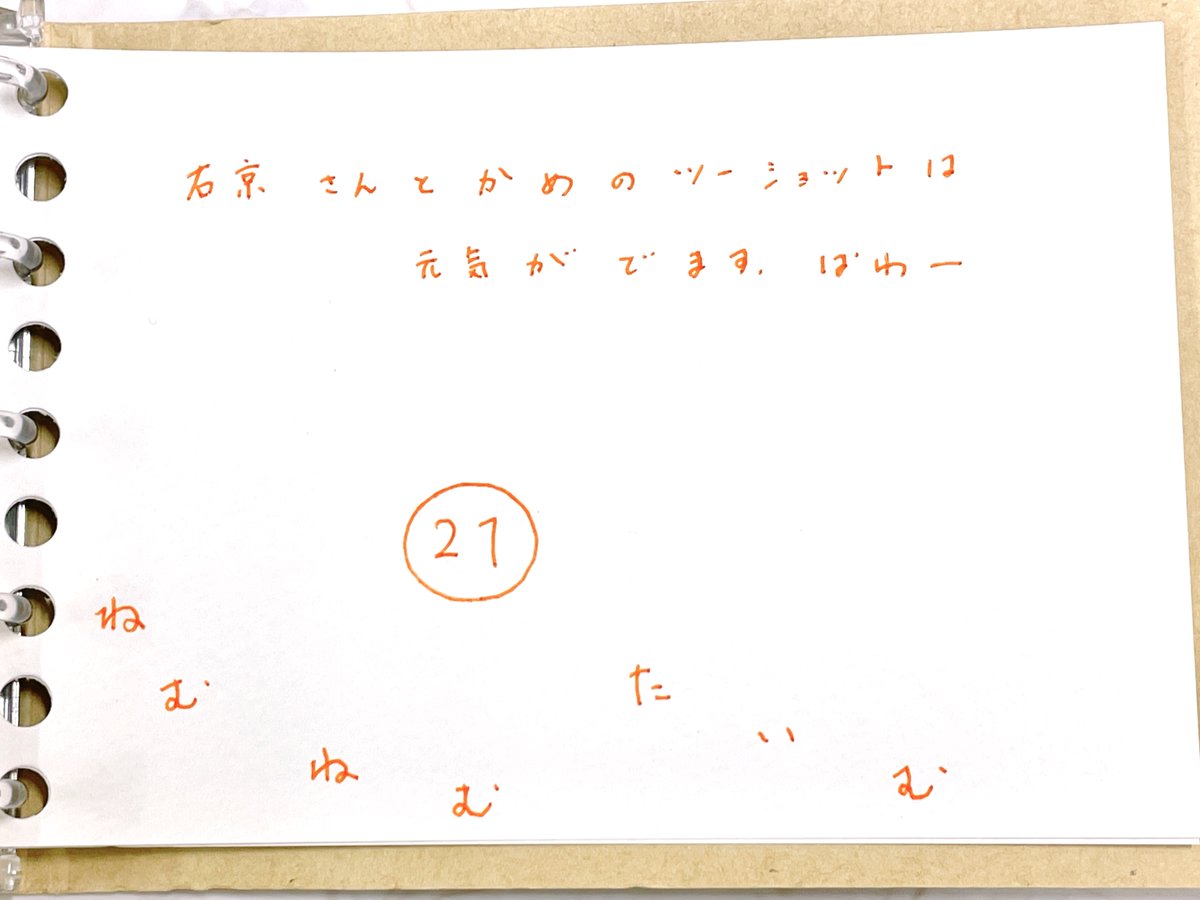 右京さんとかめのツーショットは
元気がでます. ぱわー
27
ねむねむたいむ